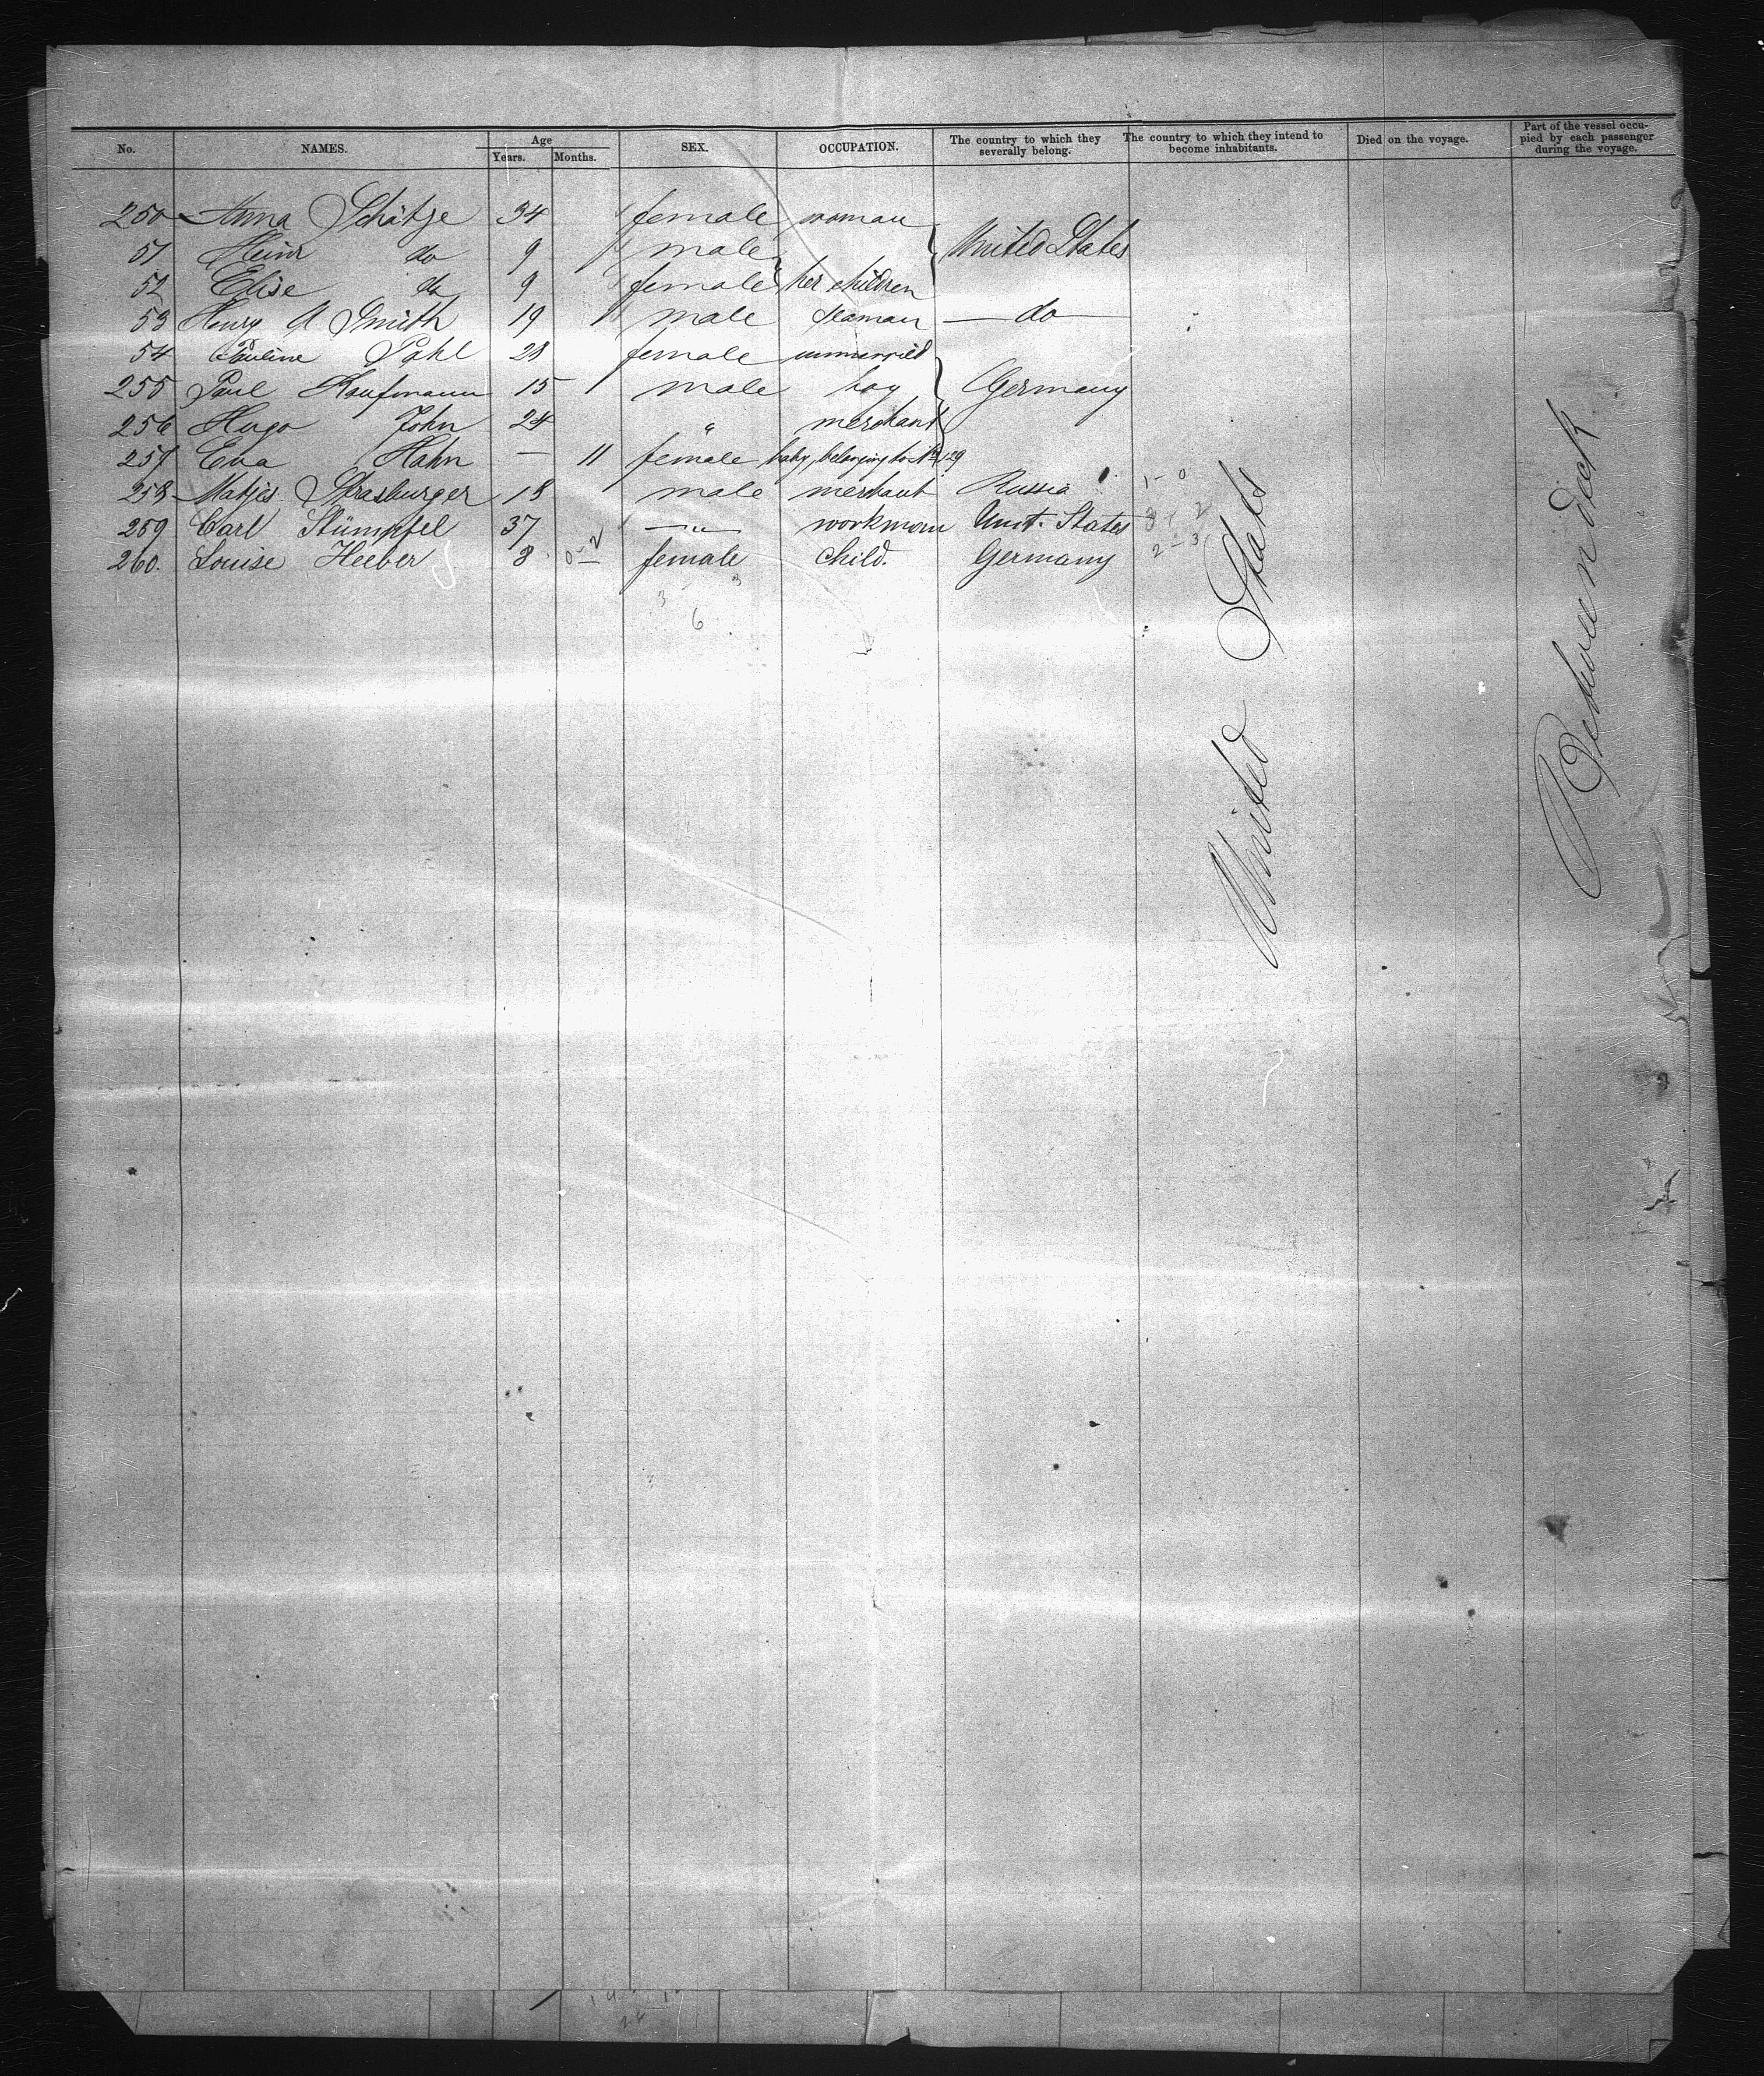 No. NAMES. Age Years. Months. SEX. OCCUPATION. The country to which they severally belong. The country to which they intend to become inhabitants. Died on the voyage. Part of the vessel occupied by each passenger during the voyage.
250 Anna Schätze 34 female woman
51 Heinr do 9 male United States
52 Elise do 9 female her children
53 Henry A Smith 19 male seaman — do —
54 Pauline Pohl 28 female unmarried
255 Paul Kaufmann 15 male boy Germany
256 Hugo John 24 " merchant
257 Eva Hahn — 11 female baby, belonging to No 129
258 Matjes Strasburger 18 male merchant Russia 1-0
259 Carl Stümpfel 37 —"— workman Unit. States
260. Louise Heeber 8 0-2 female child. Germany 2-3
3 3
6
United States
Between deck